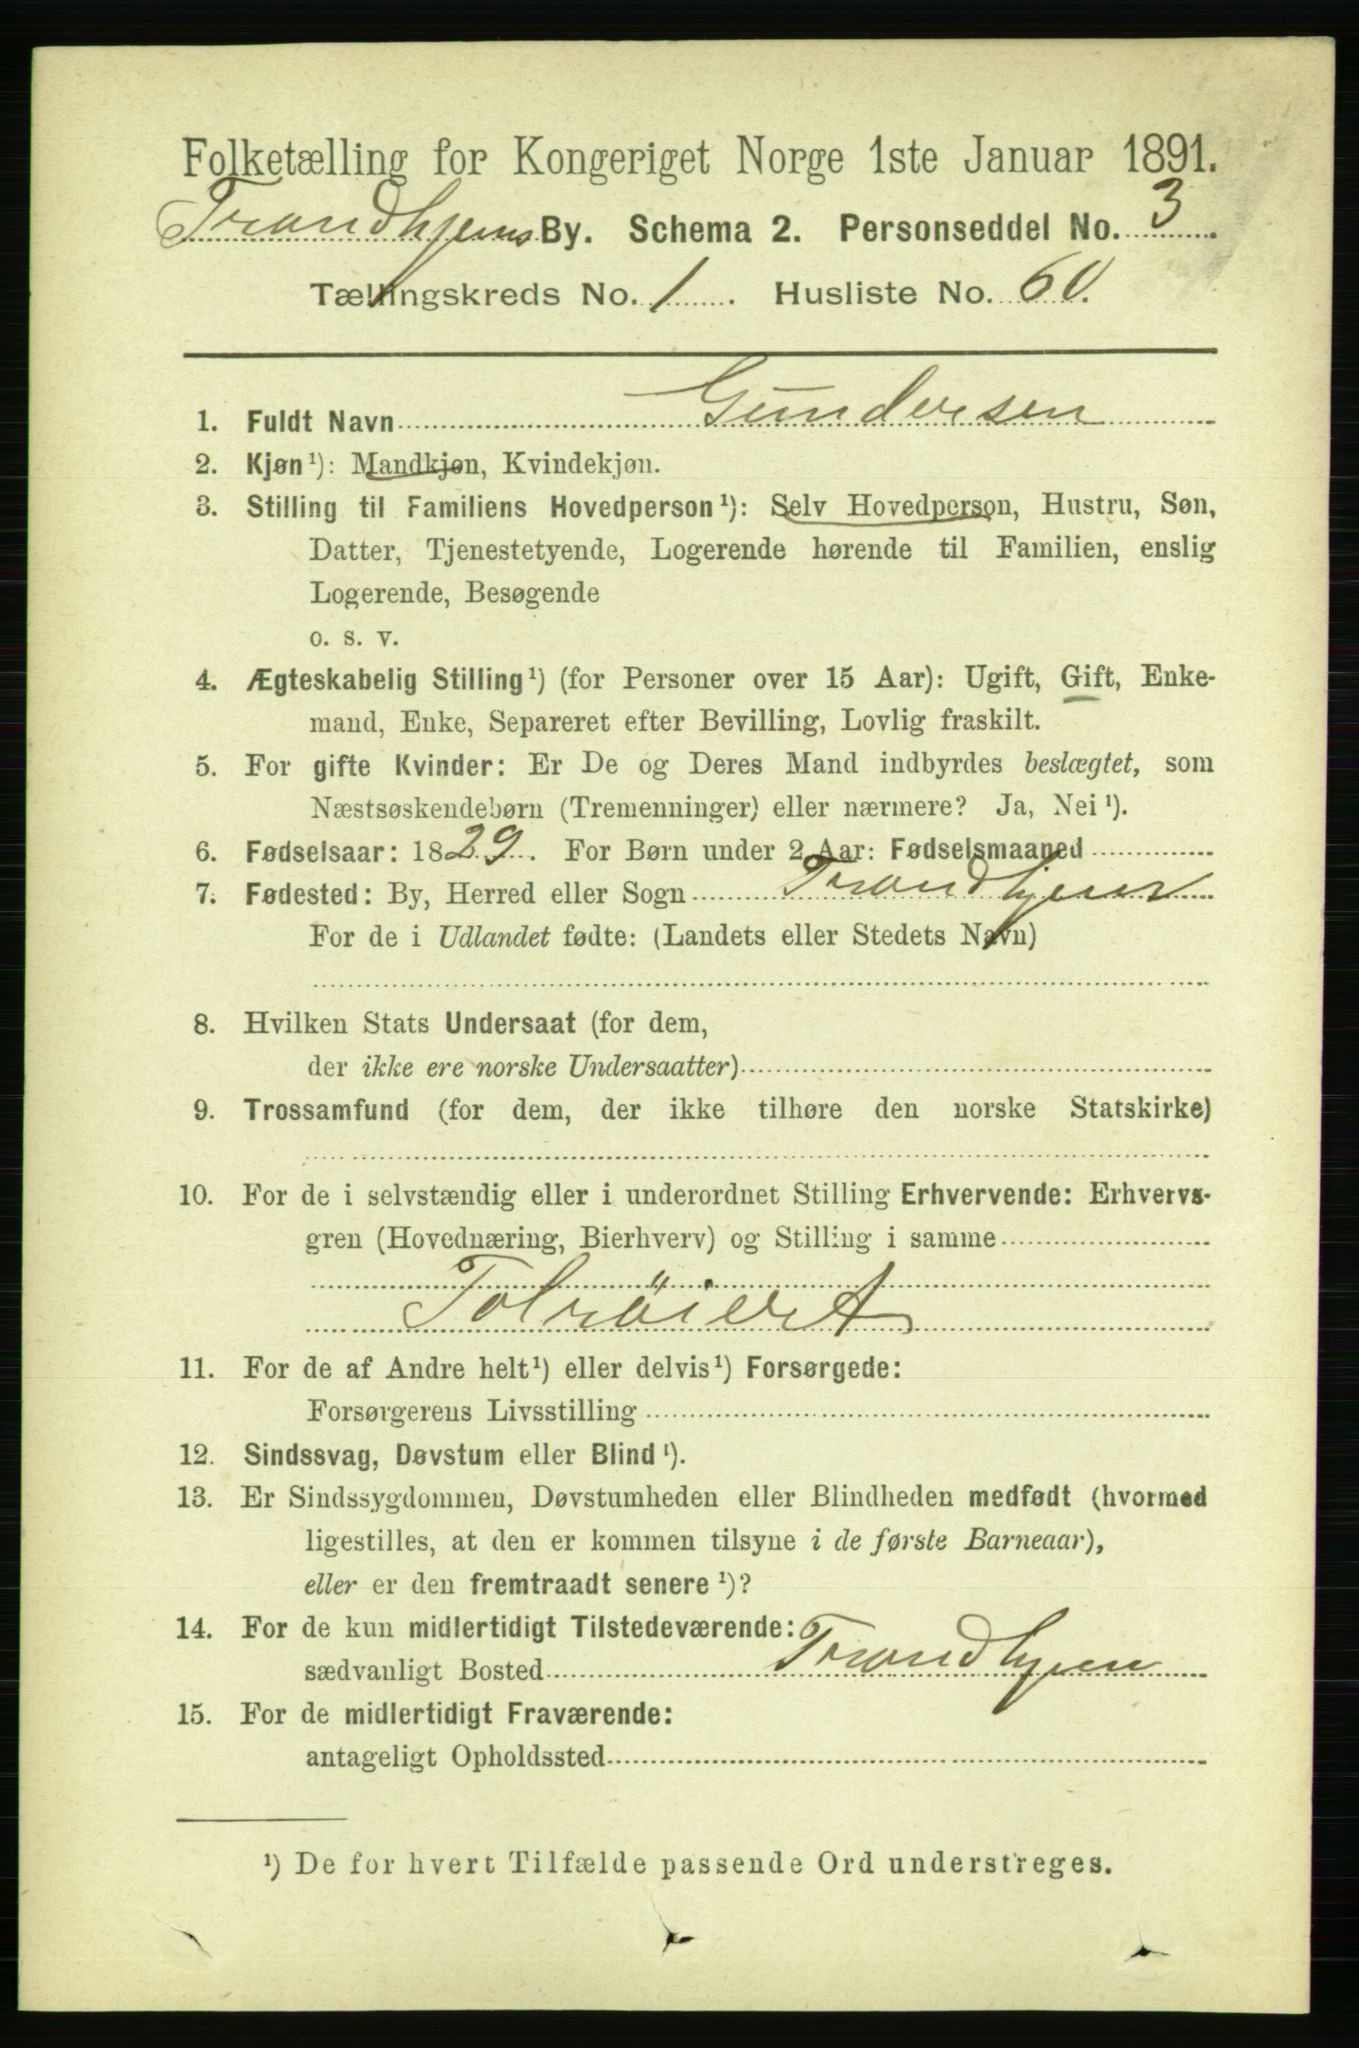 Folketælling for Kongeriget Norge 1ste Januar 1891.
Trondhjems By. Schema 2. Personseddel No. 3
Tællingskreds No. 1. Husliste No. 60.
1. Fuldt Navn Gundersen
2. Kjøn¹): Mandkjøn, Kvindekjøn.
3. Stilling til Familiens Hovedperson¹): Selv Hovedperson, Hustru, Søn,
Datter, Tjenestetyende, Logerende hørende til Familien, enslig
Logerende, Besøgende
o. s. v.
4. Ægteskabelig Stilling¹) (for Personer over 15 Aar): Ugift, Gift, Enke-
mand, Enke, Separeret efter Bevilling, Lovlig fraskilt.
5. For gifte Kvinder: Er De og Deres Mand indbyrdes beslægtet, som
Næstsøskendebørn (Tremenninger) eller nærmere? Ja, Nei¹).
6. Fødselsaar: 1829. For Børn under 2 Aar: Fødselsmaaned
7. Fødested: By, Herred eller Sogn Trondhjem
For de i Udlandet fødte: (Landets eller Stedets Navn)
8. Hvilken Stats Undersaat (for dem,
der ikke ere norske Undersaatter)
9. Trossamfund (for dem, der ikke tilhøre den norske Statskirke)
10. For de i selvstændig eller i underordnet Stilling Erhvervende: Erhvervs-
gren (Hovednæring, Bierhverv) og Stilling i samme
11. For de af Andre helt¹) eller delvis¹) Forsørgede:
Forsørgerens Livsstilling
12. Sindssvag, Døvstum eller Blind¹).
13. Er Sindssygdommen, Døvstumheden eller Blindheden medfødt (hvormed
ligestilles, at den er kommen tilsyne i de første Barneaar),
eller er den fremtraadt senere¹)?
14. For de kun midlertidigt Tilstedeværende:
sædvanligt Bosted Trondhjem
15. For de midlertidigt Fraværende:
antageligt Opholdssted
¹) De for hvert Tilfælde passende Ord understreges.